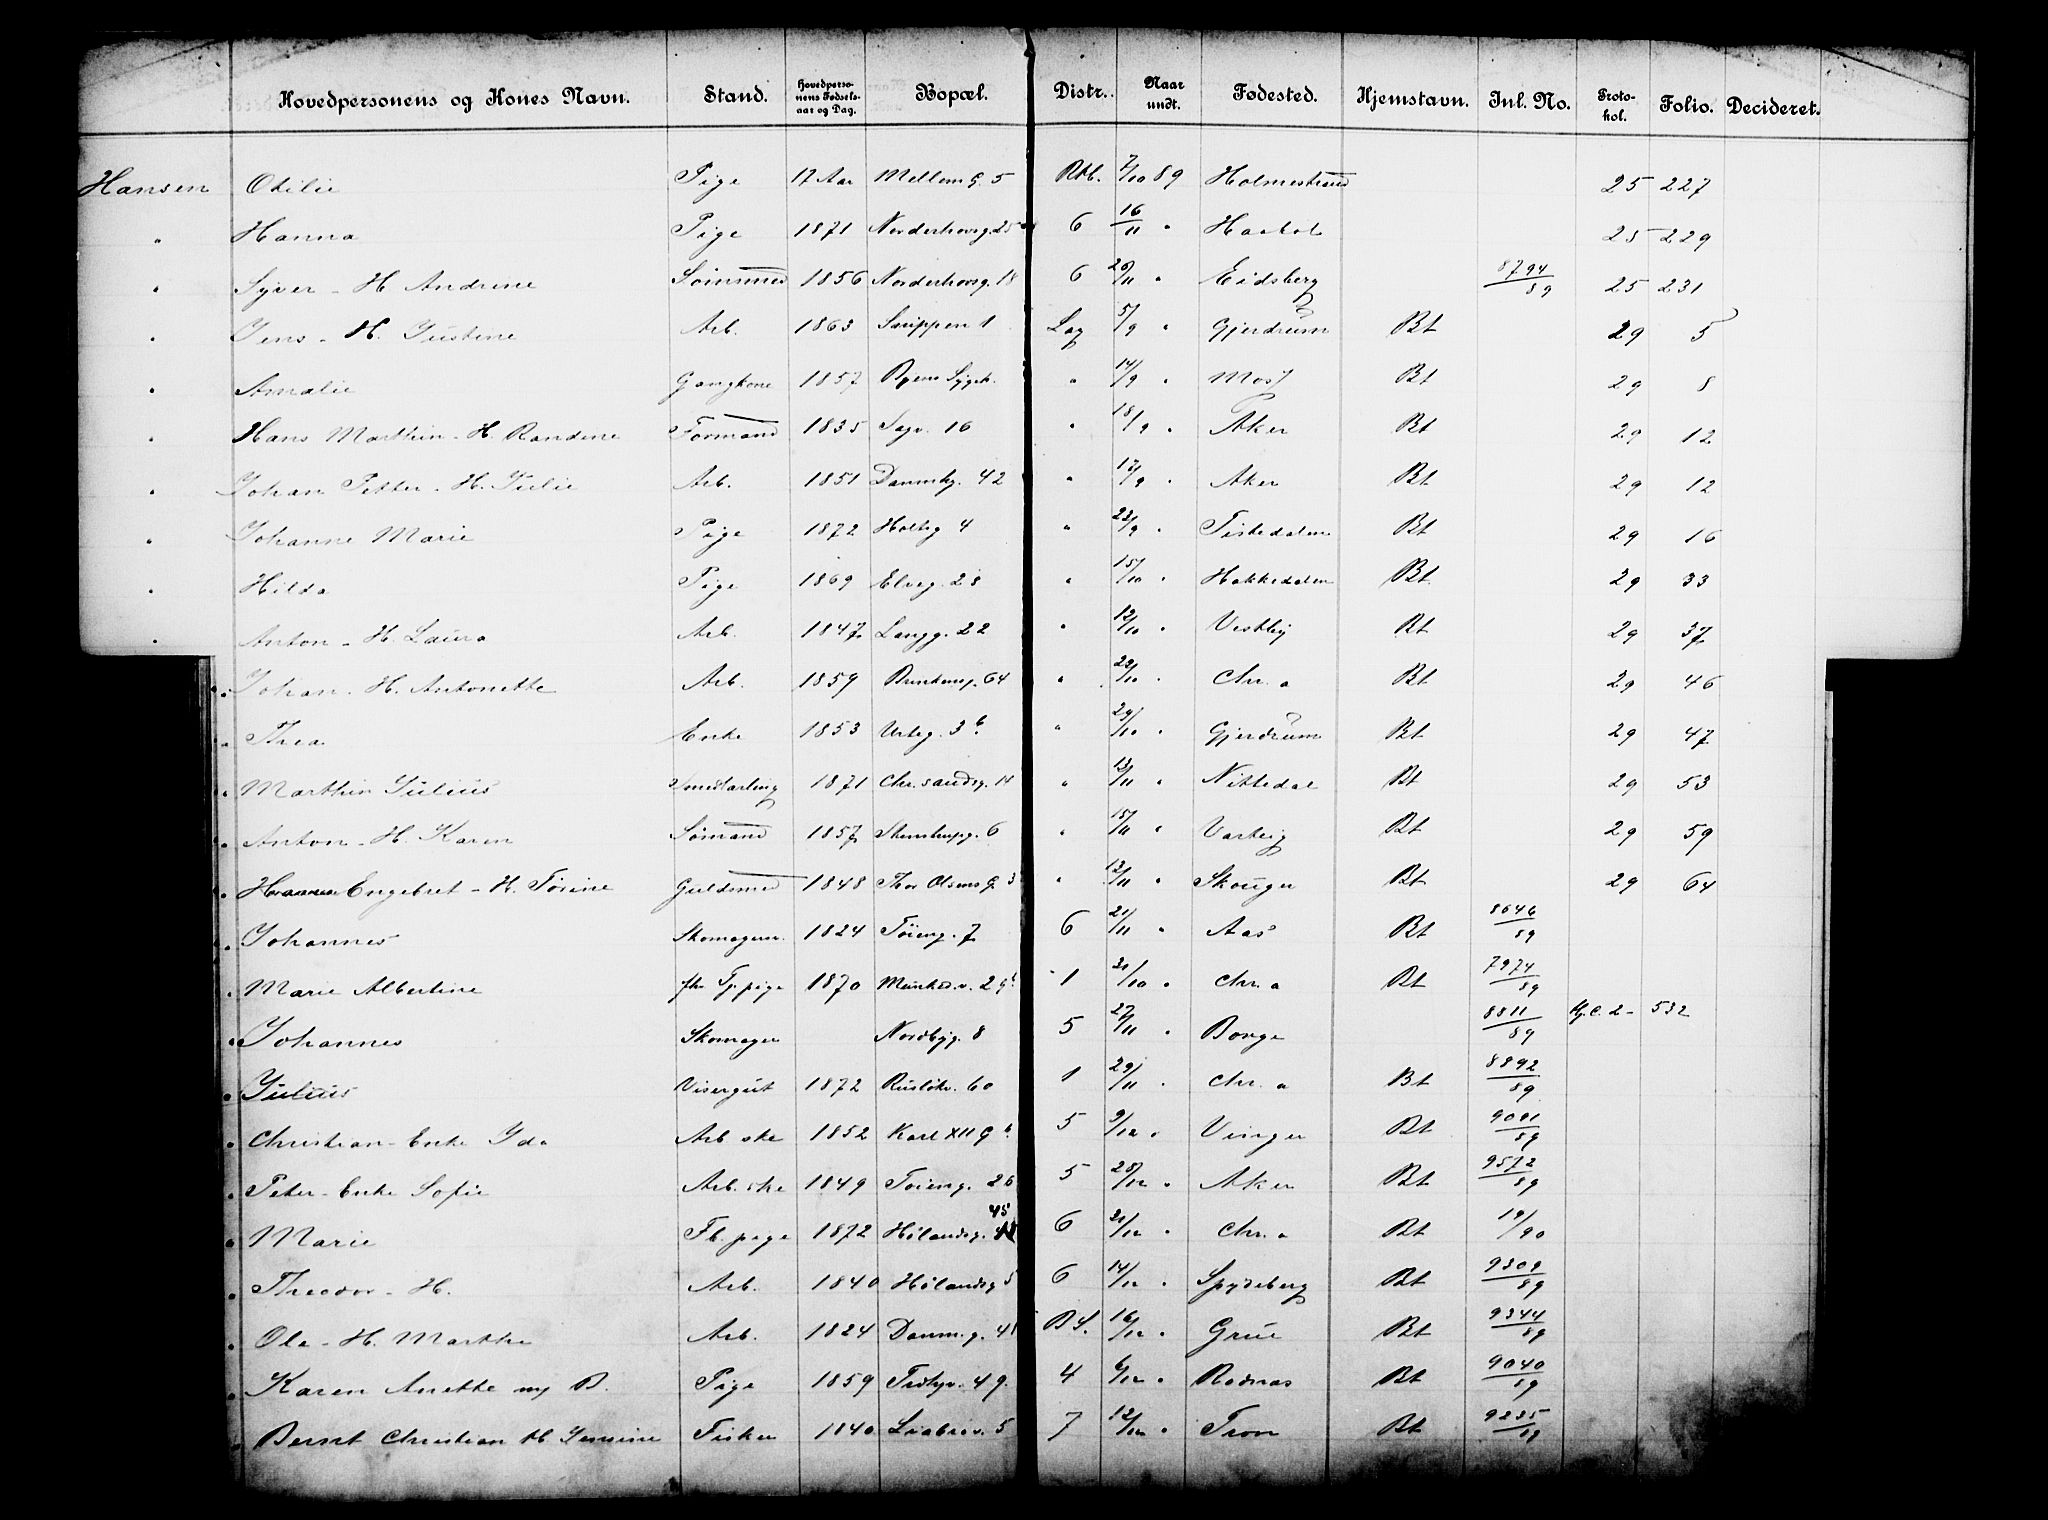 Hovedpersonens og Kones Navn. Stand. Hovedpersonens Fødselsaar og Dag. Bopæl. Distr. Naar undt. Fødested. Hjemstavn. Inl. No. Protokol. Folio. Decideret.
Hansen Otilie Pige 17 Aar Mellem G. 5 Rtb. 7/10 89 Holmestrand 25 227
" Hanna Pige 1871 Norderhovsg. 25 6 16/11 " 25 229
" Syver - H Andrine 1856 Norderhovsg. 18 6 20/11 " Eidsberg 8794/89 25 231
" Jens - H. Justine Arb. 1863 Snippen 1 Log 5/9 " Gjerdrum Bt 29 5
" Amalie Gangkone 1857 Byens Sygeh. " 14/9 " Moss Bt 29 8
" Hans Marthin - H. Randine Formand 1835 Sagv. 16 " 18/9 " Aker Bt 29 12
" Johan Petter - H. Julie Arb. 1851 Danmkg. 42 " 17/9 " Aker Bt 29 12
" Johanne Marie Pige 1872 Holtsg 4 " 23/9 " Tistedalen Bt 29 16
" Hilda Pige 1869 Elveg. 28 " 15/10 " Hakkedalen Bt 29 33
" Anton - H. Laura Arb. 1847 Langg. 22 " 12/10 " Vestby Bt 29 37
" Johan - H. Antonette Arb. 1859 64 " 10 " Chr.a Bt 29 46
" Thea Enke 1853 Urteg. 3 b " 29/10 " Gjerdrum Bt 29 47
" Marthin Julius 1871 Chr.sandsg. 14 " 13/11 " Nittedal Bt 29 53
" Anton - H. Karen Sømand 1857 Stenstrupg. 6 " 15/11 " Varteig Bt 29 59
" Engebret - H. Torine Guldsmed 1848 Thor Olsens G. 3 " 12/11 " Skouger Bt 29 64
" Johannes Skomager. 1824 Tøieng. 7 6 21/11 " Aas Bt 8646/89
" Marie Albertine fhv Tj. pige 1870 Munked.v. 2 1 21/10 " Chr.a Bt 7974/89
" Johannes Skomager Nordbyg. 8 5 27/11 " Borge 8811/89 Kj.C. 2 - 532
" Julius Visergut 1872 Rusløkv. 60 1 29/11 " Chr.a Bt 8892/89
" Christian - Enke Ida Arb ske 1852 Karl XII G 5 9/12 " Vinger Bt 9091/89
" Peter - Enke Sofie Arb. ske 1849 Tøieng. 26 5 28/12 " Aker Bt 9572/89
" Marie Fb. pige 1872 Hølandsg. 45 6 21/12 " Chr.a Bt 19/90
" Theodor - H. Arb. 1840 Hølandsg 5 6 14/12 " Spydeberg Bt 9309/89
" Ole - H. Marthe Arb. 1824 Danm.g. 41 B.S. 16/12 " Grue Bt 9344/89
" Karen Anette Pige 1859 49. 4 6/12 " Rødnæs Bt 9040/89
" Bernt Christian H. Fisker 1840 Liabrov. 5 7 12/12 " Bt 9235/89